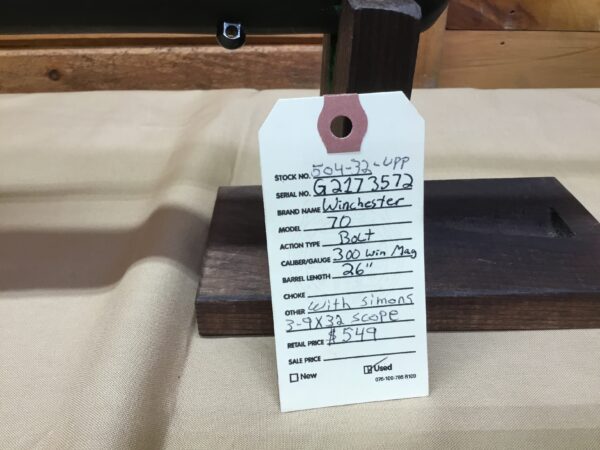 STOCK NO. 504-32-UPP
SERIAL NO. G2173572
BRAND NAME Winchester
MODEL 70
ACTION TYPE Bolt
CALIBER/GAUGE 300 Win Mag
BARREL LENGTH 26"
CHOKE
OTHER with simons
3-9X32 scope
RETAIL PRICE $549
SALE PRICE
New Used
076-100-795 R103